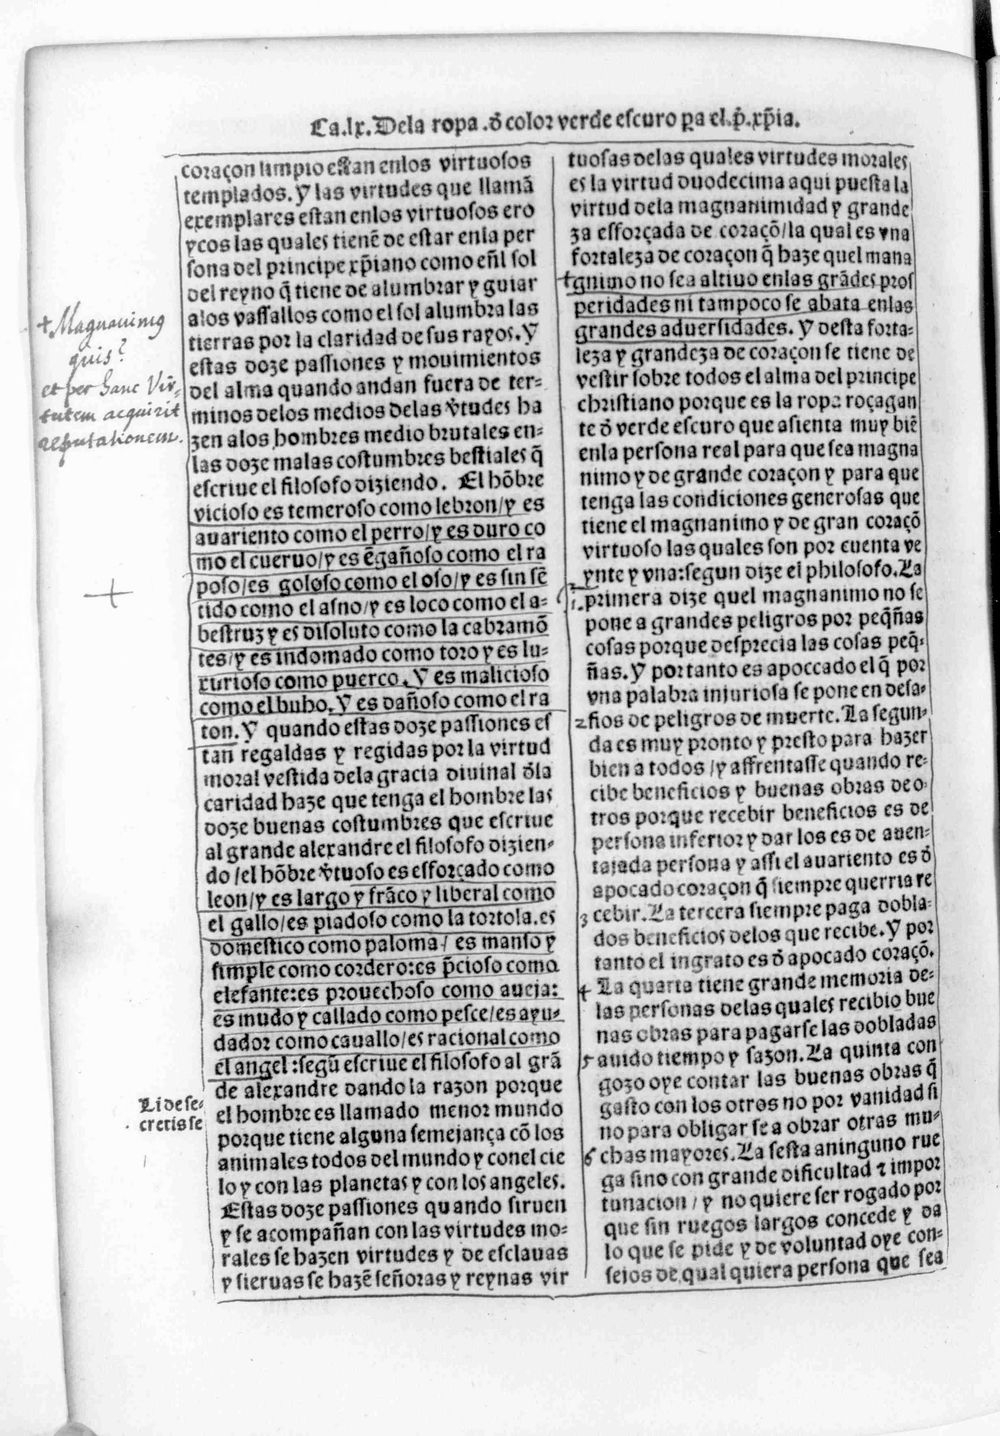 Ca.lx. Dela ropa .d̄ color verde escuro p̱a el .p̄. xp̄ia.
coraçon limpio estan enlos virtuosos
templados. Y las virtudes que llamã
exemplares estan enlos virtuosos ero
ycos las quales tienẽ de estar enla per
sona del principe xp̄iano como eñl sol
del reyno q̃ tiene de alumbrar y guiar
alos vassallos como el sol alumbra las
tierras por la claridad de sus rayos. Y
estas doze passiones y mouimientos
del alma quando andan fuera de ter-
minos delos medios delas v̄tudes ha
zen alos hombres medio brutales en-
las doze malas costumbres bestiales q̃
escriue el filosofo diziendo. El hõbre
vicioso es temeroso como lebron/y es
auariento como el perro/y es duro co
mo el cueruo/y es ẽgañoso como el ra
poso/es goloso como el oso/y es sin sẽ
tido como el asno/y es loco como el a-
bestruz y es disoluto como la cabramõ
tes/y es indomado como toro y es lu-
xurioso como puerco. Y es malicioso
como el buho. Y es dañoso como el ra
ton. Y quando estas doze passiones es
tan regaldas y regidas por la virtud
moral vestida dela gracia diuinal d̄la
caridad haze que tenga el hombre las
doze buenas costumbres que escriue
al grande alexandre el filosofo dizien-
do/el hõbre v̄tuoso es esforçado como
leon/y es largo y frãco y liberal como
el gallo/es piadoso como la tortola. es
domestico como paloma/ es manso y
simple como cordero:es p̄cioso como
elefante:es prouechoso como aueja:
es mudo y callado como pesce/es ayu-
dador como cauallo/es racional como
el angel:segũ escriue el filosofo al grã
de alexandre dando la razon porque
el hombre es llamado menor mundo
porque tiene alguna semejança cõ los
animales todos del mundo y conel cie
lo y con las planetas y con los angeles.
Estas doze passiones quando siruen
y se acompañan con las virtudes mo-
rales se hazen virtudes y de esclauas
y sieruas se hazẽ señoras y reynas vir
+ Magnanimus
quis?
et per hanc Vir-
tutem acquirit
reputationem.
+
Li de se-
cretis se
tuosas delas quales virtudes morales
es la virtud duodecima aqui puesta la
virtud dela magnanimidad y grande
za esforçada de coraçõ/la qual es vna
fortaleza de coraçon q̃ haze quel mana
+gnimo no sea altiuo enlas grãdes pros
peridades ni tampoco se abata enlas
grandes aduersidades. Y desta forta-
leza y grandeza de coraçon se tiene de
vestir sobre todos el alma del principe
christiano porque es la ropa roçagan
te d̄ verde escuro que asienta muy biẽ
enla persona real para que sea magna
nimo y de grande coraçon y para que
tenga las condiciones generosas que
tiene el magnanimo y de gran coraçõ
virtuoso las quales son por cuenta ve
ynte y vna:segun dize el philosofo. La
1. primera dize quel magnanimo no se
pone a grandes peligros por peq̃ñas
cosas porque desprecia las cosas peq̃-
ñas. Y por tanto es apoccado el q̃ por
vna palabra injuriosa se pone en desa-
2 fios de peligros de muerte. La segun-
da es muy pronto y presto para hazer
bien a todos /y affrentasse quando re-
cibe beneficios y buenas obras de o-
tros porque recebir beneficios es de
persona inferior y dar los es de auen-
tajada persona y assi el auariento es d̄
apocado coraçon q̃ siempre querria re
3 cebir. La tercera siempre paga dobla-
dos beneficios delos que recibe. Y por
tanto el ingrato es d̄ apocado coraçõ.
4 La quarta tiene grande memoria de-
las personas delas quales recibio bue
nas obras para pagarse las dobladas
5 auido tiempo y sazon. La quinta con
gozo oye contar las buenas obras q̃
gasto con los otros no por vanidad si
no para obligar se a obrar otras mu-
6 chas mayores. La sesta aninguno rue
ga sino con grande dificultad ⁊ impor
tunacion/ y no quiere ser rogado por
que sin ruegos largos concede y da
lo que se pide y de voluntad oye con-
sejos de qual quiera persona que sea